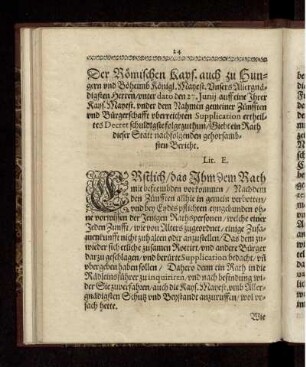 24
Der Römischen Kays. auch zu Hun-
gern vnd Böheimb Königl. Mayest. Vnsers Allergnä-
digsten Herren / vnter dato den 27. Junij auff eine Ihrer
Kays. Mayest. vnder dem Nahmen gemeiner Zünfften
vnd Bürgerschafft vberreichten Supplication ertheil-
tes Decret schuldigste folge zuthun / Gibt ein Rath
dieser Statt nachfolgenden gehorsamb-
sten Bericht.
Lit. E.
ERstlich / das Ihm dem Rath
mit befrembden vorkommen / Nachdem
den Zünfften allhie in gemein verbotten /
vnd bey Eydespflichten eingebunden ohne
vorwissen der Jenigen Rathspersonen / welche einer
Jeden Zunfft / wie von Alters zugeordnet / einige Zusa-
menkunfft nicht zuhalten oder anzustellen / Das dem zu-
wieder sich etliche zusamen Rottirt, vnd andere Bürger
darzu geschlagen / vnd berürte Supplication bedacht / vñ
vbergeben haben sollen / Dahero dann ein Rath in die
Rädleinsführer zu inquiriren, vnd nach befindung wi-
der Sie zuverfahren / auch die Kays. Mayest. vmb Aller-
gnädigsten Schutz vnd Beystandt anzuruffen / wol vr-
sach hette.
Wie